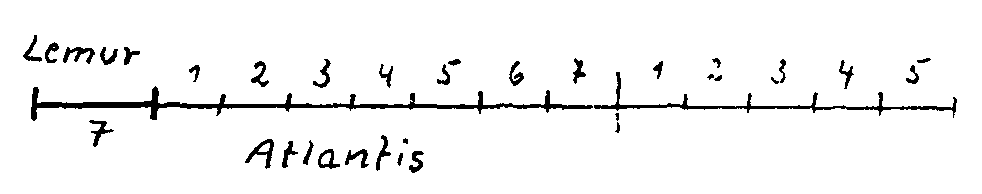 Lemur
1 2 3 4 5 6 7 1 2 3 4 5
7
Atlantis